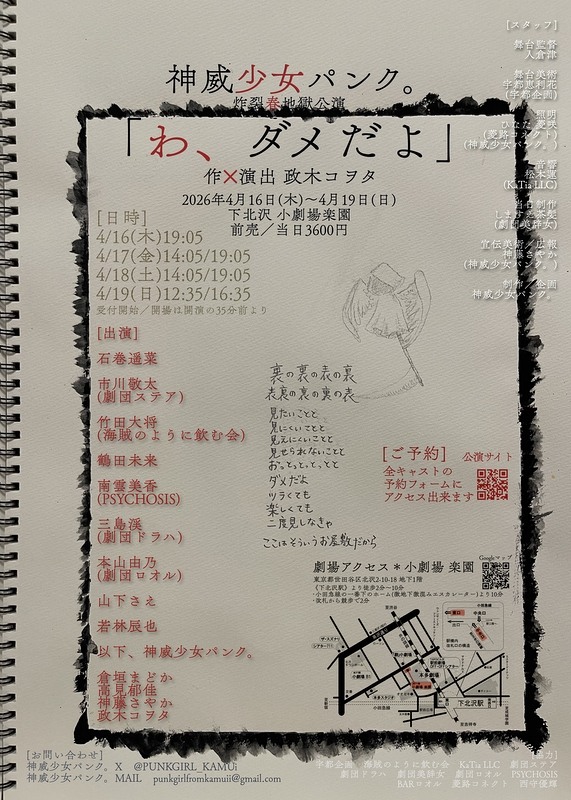 神威少女パンク。
炸裂春地獄公演
「わ、ダメだよ」
作×演出 政木コヲタ
2026年4月16日(木)～4月19日(日)
下北沢 小劇場楽園
前売／当日3600円
[日時]
4/16(木)19:05
4/17(金)14:05/19:05
4/18(土)14:05/19:05
4/19(日)12:35/16:35
受付開始／開場は開演の35分前より
[出演]
石巻遥菜
市川敬太
(劇団ステア)
竹田大将
(海賊のように飲む会)
鶴田未来
南雲美香
(PSYCHOSIS)
三島渓
(劇団ドラハ)
本山由乃
(劇団ロオル)
山下さえ
若林辰也
以下、神威少女パンク。
倉垣まどか
高見郁佳
神藤さやか
政木コヲタ
裏の裏の表の裏
表裏の裏の裏の表
見たいことと
見にくいことと
見えにくいことと
見せられないことと
おっとっと、とっと
ダメだよ
ツラくても
楽しくても
二度見しなきゃ
ここはそういうお屋敷だから
[ご予約]
公演サイト
全キャストの
予約フォームに
アクセス出来ます
Googleマップ
劇場アクセス＊小劇場 楽園
東京都世田谷区北沢2-10-18 地下1階
《下北沢駅》より徒歩2分～10分
・小田急線の一番下のホーム(微地下微混みエスカレーター)より10分
・改札から競歩で2分
本多劇場
下北沢駅
小田急線
[スタッフ]
舞台監督
入倉津
舞台美術
宇都恵利花
(宇都企画)
照明
(菱路コネクト)
(神威少女パンク。)
音響
松木蓮
(KaTu LLC)
当日制作
(劇団美辞女)
宣伝美術／広報
神藤さやか
(神威少女パンク。)
制作／企画
神威少女パンク。
[お問い合わせ]
神威少女パンク。 X @PUNKGIRL_KAMUi
神威少女パンク。 MAIL punkgirlfromkamuii@gmail.com
[協力]
宇都企画 海賊のように飲む会 KaTu LLC 劇団ステア
劇団ドラハ 劇団美辞女 劇団ロオル PSYCHOSIS
BARロオル 菱路コネクト 西守優輝